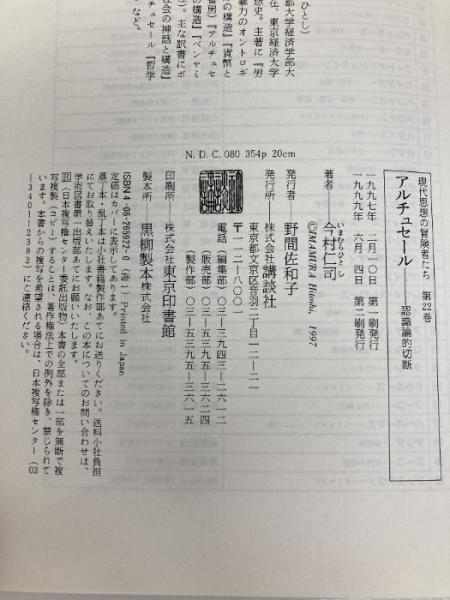 ひとし）
都大学経済学部大
在、東京経済大学
想史。主著に『労
暴力のオントロギ
の構造』『貨幣と
書房）『アルチュセ
の構造』『ベンヤミ
社会の神話と構造』
）。主な訳書にボ
チュセール『哲学
など。
N.D.C. 080 354p 20cm
現代思想の冒険者たち 第22巻
アルチュセール――認識論的切断
一九九七年 二月一〇日 第一刷発行
一九九九年 六月 四日 第二刷発行
いまむらひとし
著者――今村仁司
©IMAMURA Hitoshi, 1997
発行者――野間佐和子
発行所――株式会社講談社
東京都文京区音羽二丁目一二―二一
〒一一二―八〇〇一
電話（編集部）〇三―三九四三―二六一二
（販売部）〇三―五三九五―三六二四
（製作部）〇三―五三九五―三六一五
印刷所――株式会社東京印書館
製本所――黒柳製本株式会社
ISBN4-06-265922-0 Printed in Japan
定価はカバーに表示してあります。
落丁本・乱丁本は小社書籍製作部あてにお送りください。送料小社負担
にてお取り替えいたします。なお、この本についてのお問い合わせは、
学術図書第一出版部あてにお願いいたします。
Ⓡ〈日本複写権センター委託出版物〉本書の全部または一部を無断で複
写複製（コピー）することは、著作権法上での例外を除き、禁じられて
います。本書からの複写を希望される場合は、日本複写権センター（03
―3401―2382）にご連絡ください。